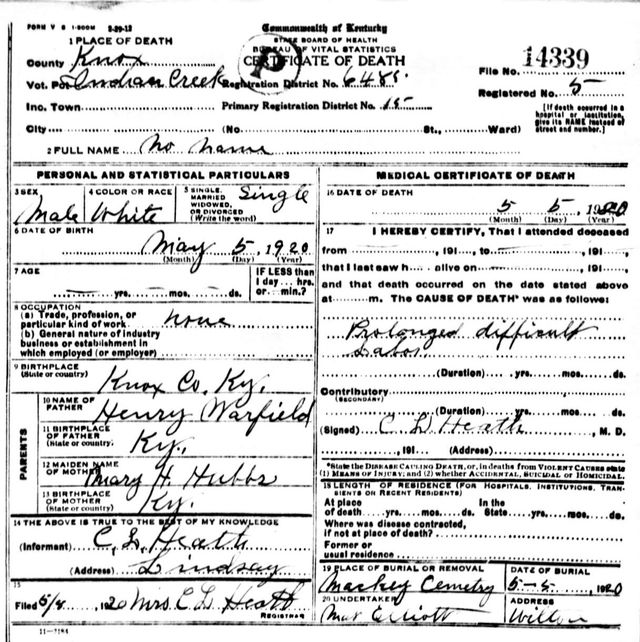 FORM V S 1-500M 2-29-12
Commonwealth of Kentucky
STATE BOARD OF HEALTH
BUREAU OF VITAL STATISTICS
CERTIFICATE OF DEATH
P
1 PLACE OF DEATH
County Knox
Vot. Pct Indian Creek Registration District No. 6485.
Inc. Town Primary Registration District No.
City (No. St., Ward)
2 FULL NAME No name
File No. 14339
Registered No. 5
[If death occurred in a
hospital or institution,
give its NAME instead of
street and number.]
PERSONAL AND STATISTICAL PARTICULARS
3 SEX Male
4 COLOR OR RACE White
5 SINGLE, MARRIED WIDOWED, OR DIVORCED (Write the word) Single
6 DATE OF BIRTH
May 5, 1920
(Month) (Day) (Year)
7 AGE
yrs. mos. ds.
IF LESS than
1 day... hrs.
or... min.?
8 OCCUPATION
(a) Trade, profession, or
particular kind of work none
(b) General nature of industry
business or establishment in
which employed (or employer)
9 BIRTHPLACE
(State or country)
Knox Co. Ky.
PARENTS
10 NAME OF
FATHER Henry Warfield
11 BIRTHPLACE
OF FATHER
(State or country) Ky.
12 MAIDEN NAME
OF MOTHER Mary H. Hubbs
13 BIRTHPLACE
OF MOTHER
(State or country) Ky.
14 THE ABOVE IS TRUE TO THE BEST OF MY KNOWLEDGE
(Informant) C. L. Heath
(Address) Lindsay
15
Filed 5/8, 1920 Mrs. C L Heath
REGISTRAR
11-3184
MEDICAL CERTIFICATE OF DEATH
16 DATE OF DEATH
5 5, 1920
(Month) (Day) (Year)
17 I HEREBY CERTIFY, That I attended deceased
from , 191 , to , 191 ,
that I last saw h alive on , 191 ,
and that death occurred on the date stated above
at m. The CAUSE OF DEATH* was as follows:
Prolonged difficult
Labor.
(Duration) yrs. mos. ds.
Contributory
(SECONDARY)
(Duration) yrs. mos. ds.
(Signed) C L Heath, M. D.
, 191 (Address)
*State the DISEASE CAUSING DEATH, or, in deaths from VIOLENT CAUSES state
(1) MEANS OF INJURY; and (2) whether ACCIDENTAL, SUICIDAL OR HOMICIDAL.
18 LENGTH OF RESIDENCE (FOR HOSPITALS, INSTITUTIONS, TRANSIENTS OR RECENT RESIDENTS)
At place In the
of death yrs. mos. ds. State yrs. mos. ds.
Where was disease contracted,
if not at place of death?
Former or
usual residence
19 PLACE OF BURIAL OR REMOVAL
Mackey Cemetry
DATE OF BURIAL
5-5, 1920
20 UNDERTAKER
Elliott
ADDRESS